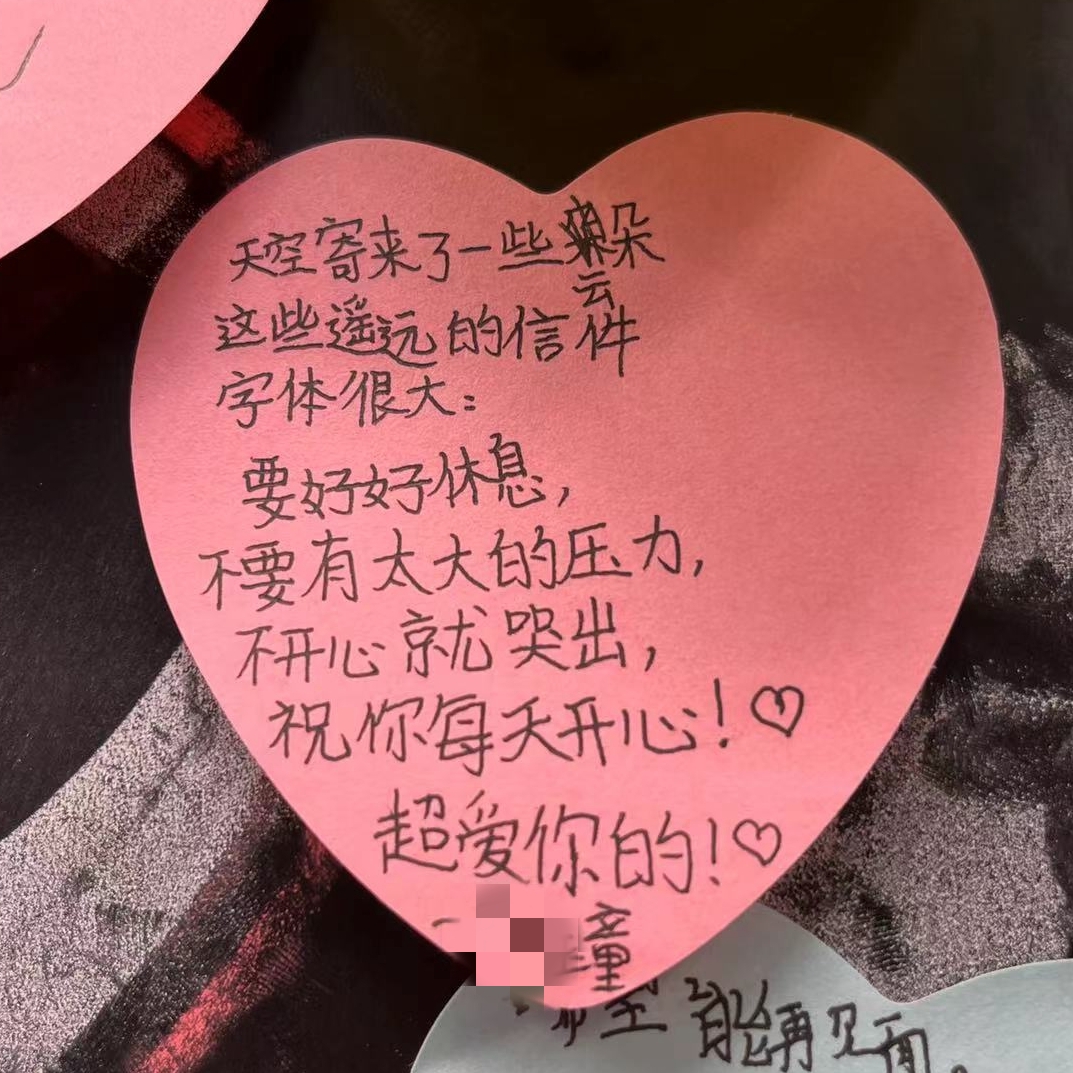 天空寄来了一些云朵
这些遥远的信件
字体很大:
要好好休息,
不要有太大的压力,
不开心就哭出,
祝你每天开心!♡
超爱你的!♡
童
希望能再见面。